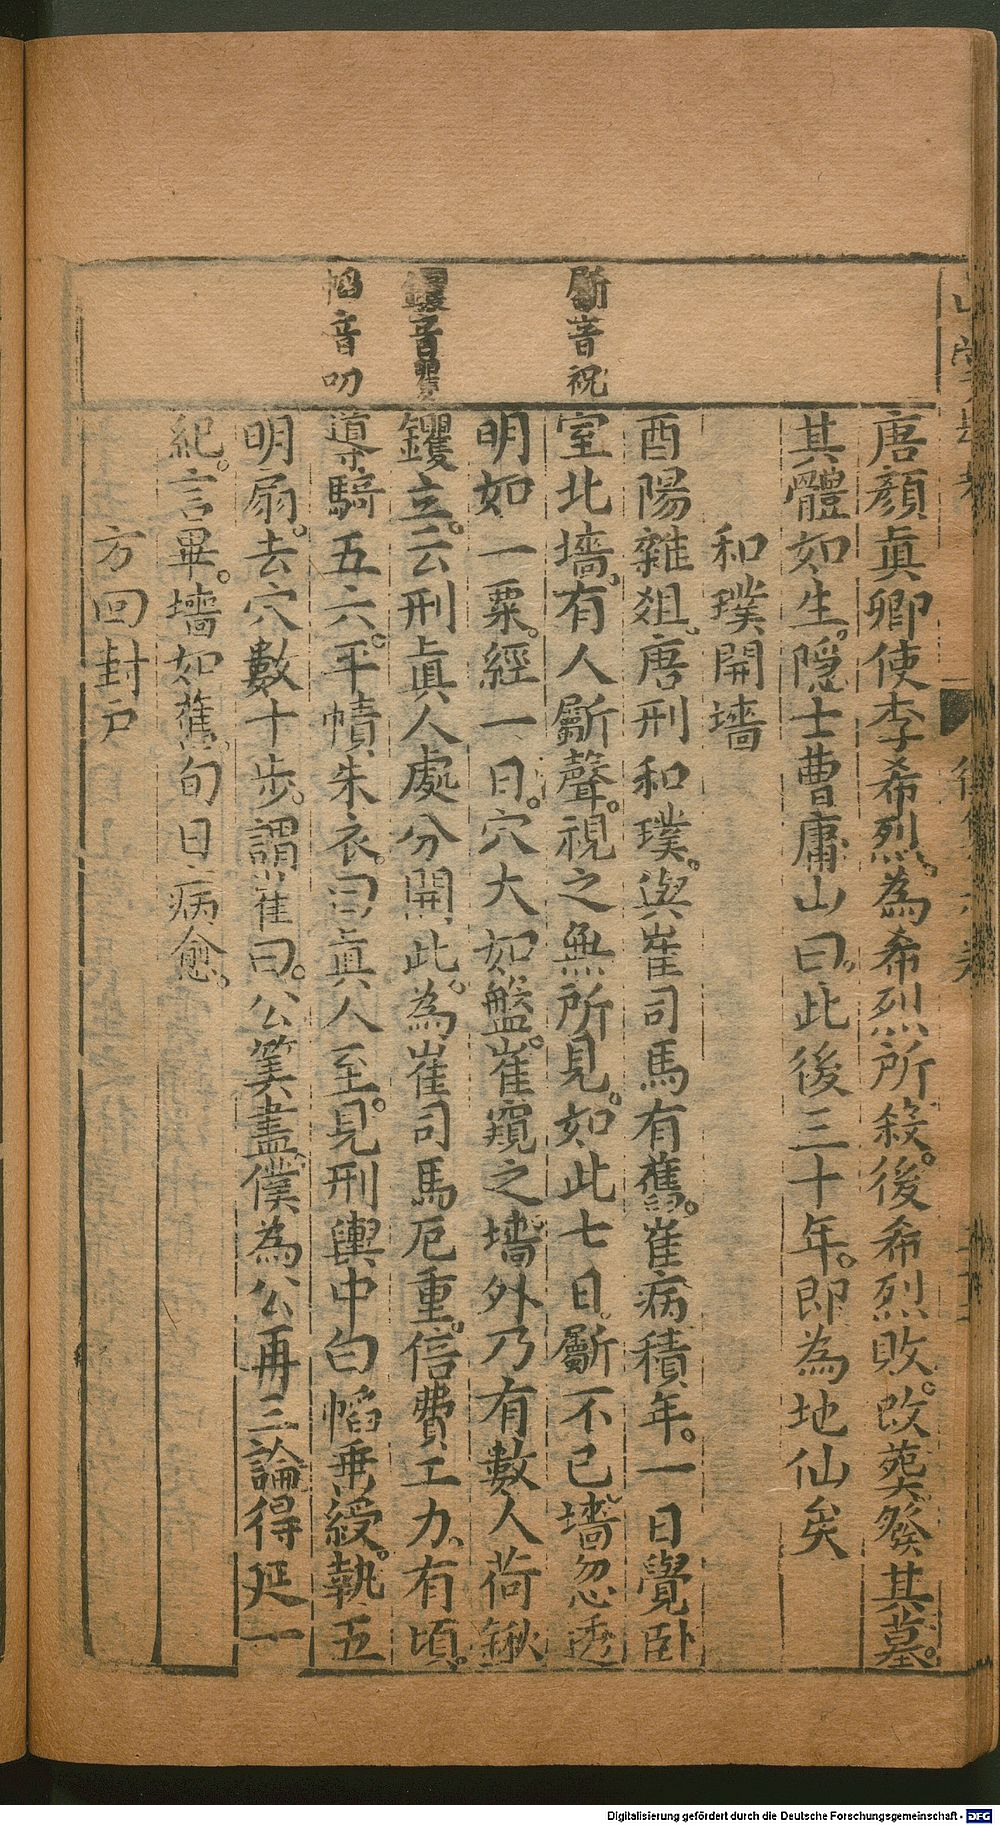 唐顏眞卿使李希烈。為希烈所殺。後希烈敗。改葬發其墓。
其體如生。隱士曹庸山曰。此後三十年。即為地仙矣
和璞開墻
斸音祝
酉陽雜俎。唐刑和璞。與崔司馬有舊。崔病積年。一日覺臥
室北墻。有人斸聲。視之無所見。如此七日。斸不已。墻忽透
明如一粟。經一日。穴大如盤。崔窺之。墻外乃有數人荷鍬
钁音矍
钁立。云刑眞人處分開此。為崔司馬厄重。倍費工力。有頃。
幍音叨
導騎五六。平幘朱衣。曰眞人至。見刑輿中白幍垂綬。執五
明扇。去穴數十步。謂崔曰。公筭盡。僕為公再三論得延一
紀。言畢。墻如舊。旬日病愈。
方回封戶
Digitalisierung gefördert durch die Deutsche Forschungsgemeinschaft - DFG